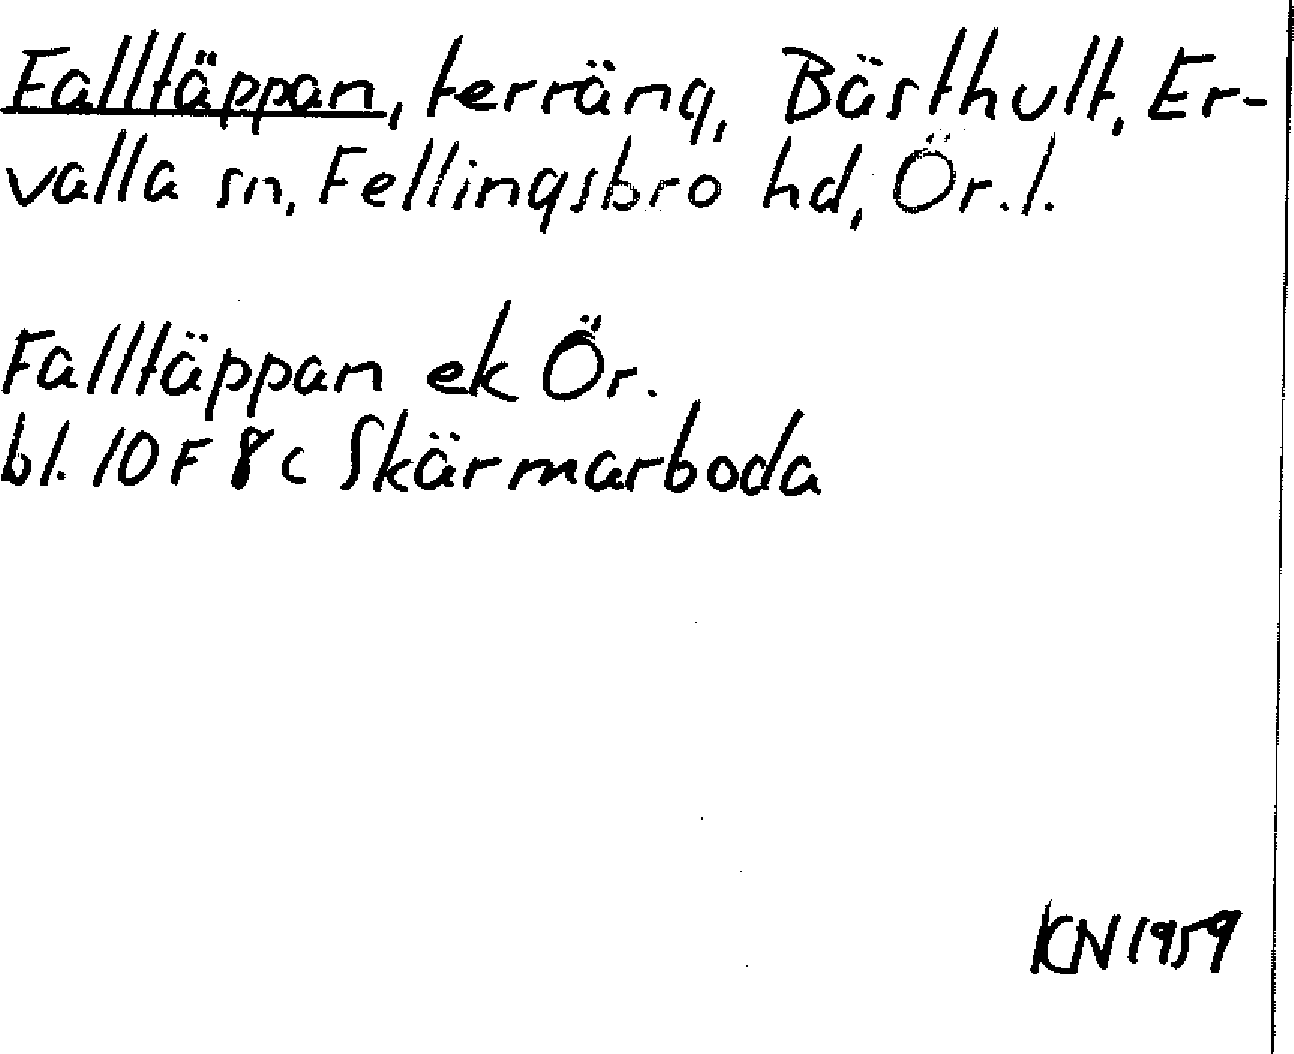 Falltäppan, terräng, Bästhult, Er-
valla sn, Fellingsbro hd, Ör. l.
Falltäppan ek Ör.
bl. 10 F 8 c Skärmarboda
KN 1959